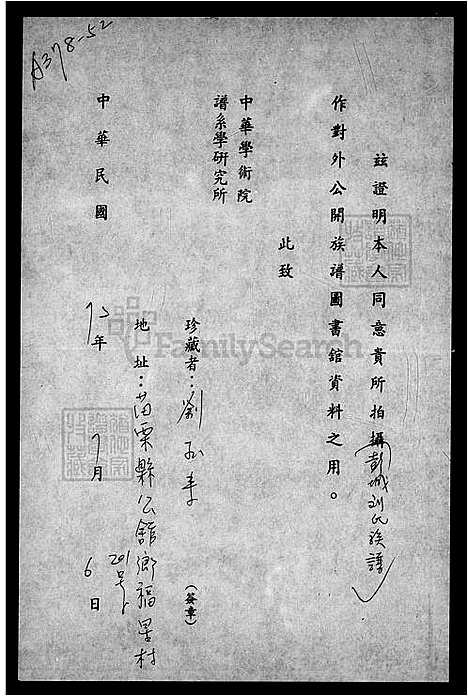 A378-52
茲證明本人同意貴所拍攝彭城刘氏族譜
作對外公開族譜圖書館資料之用。
此致
中華學術院
譜系學研究所
珍藏者：劉 (簽章)
地址：苗栗縣公館鄉福星村
201号
中華民國 年 7月 6日
FamilySearch